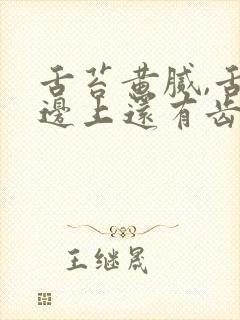 舌苔黄腻,舌
边上还有齿
王继晟